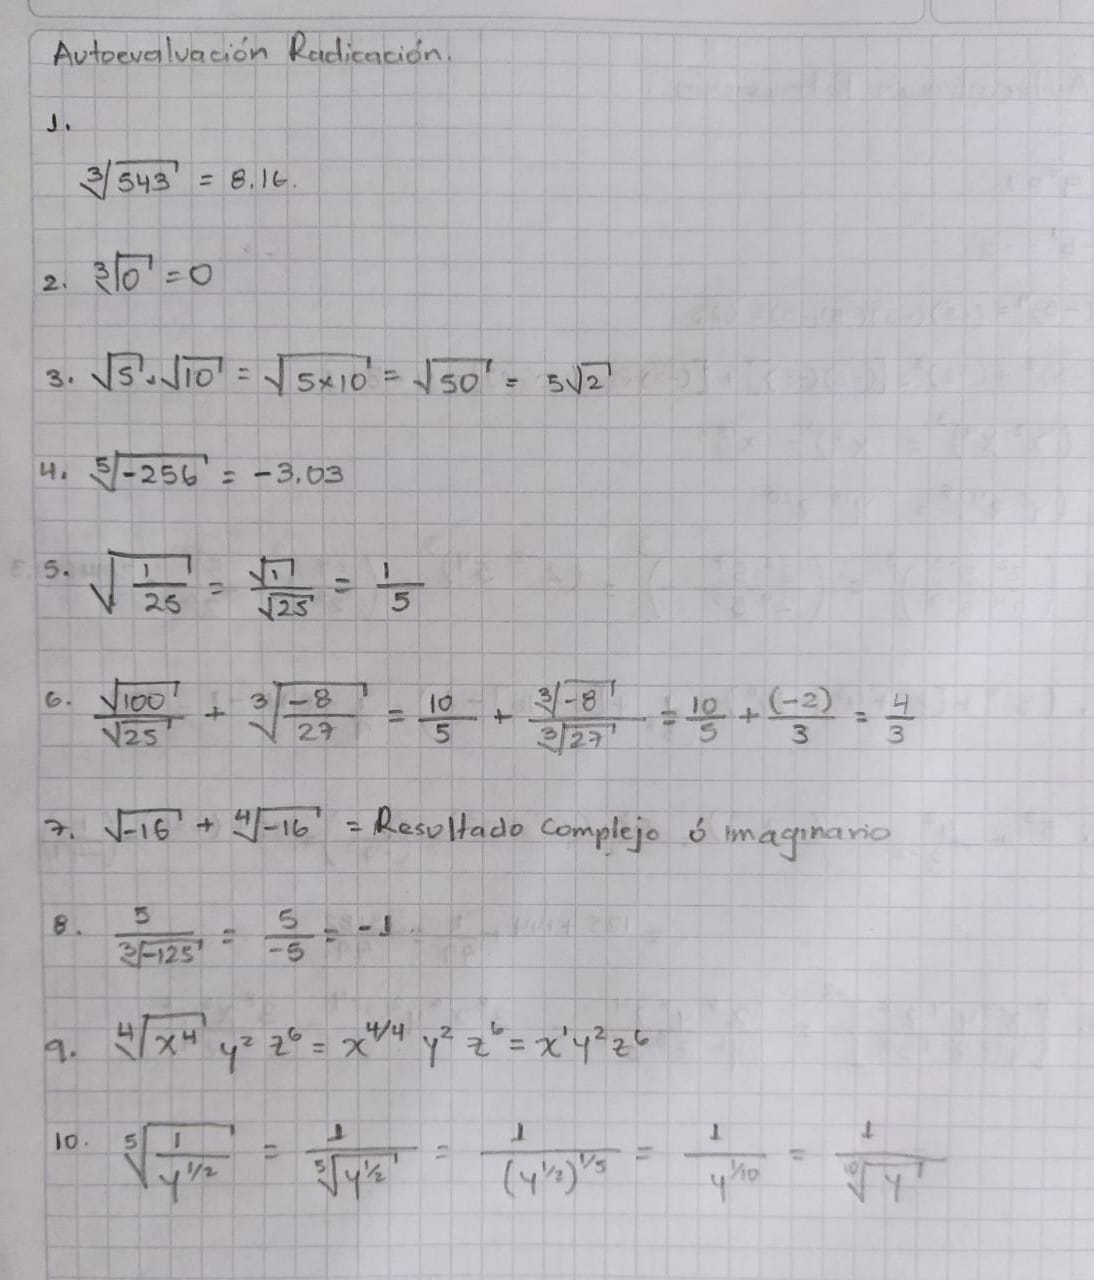 Autoevalvación Radicación.
1.
∛543 = 8.16.
2. ∛0 = 0
3. √5 . √10 = √5×10 = √50 = 5√2
4. ⁵√-256 = -3.03
5. √(1/25) = √1/√25 = 1/5
6. √100/√25 + ∛(-8/27) = 10/5 + ∛-8/∛27 = 10/5 + (-2)/3 = 4/3
7. √-16 + ⁴√-16 = Resultado complejo ó imaginario
8. 5/∛-125 = 5/-5 = -1.
9. ⁴√x⁴ y² z⁶ = x^4/4 y² z⁶ = x¹y²z⁶
10. ⁵√(1/y^1/2) = 1/⁵√(y^1/2) = 1/(y^1/2)^1/5 = 1/y^1/10 = 1/¹⁰√y